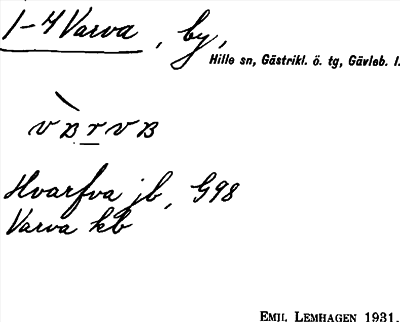 1-4 Varva, by,
Hille sn, Gästrikl. ö. tg, Gävleb. l.
Hvarfva jb, G98
Varva kb
EMIL LEMHAGEN 1931.